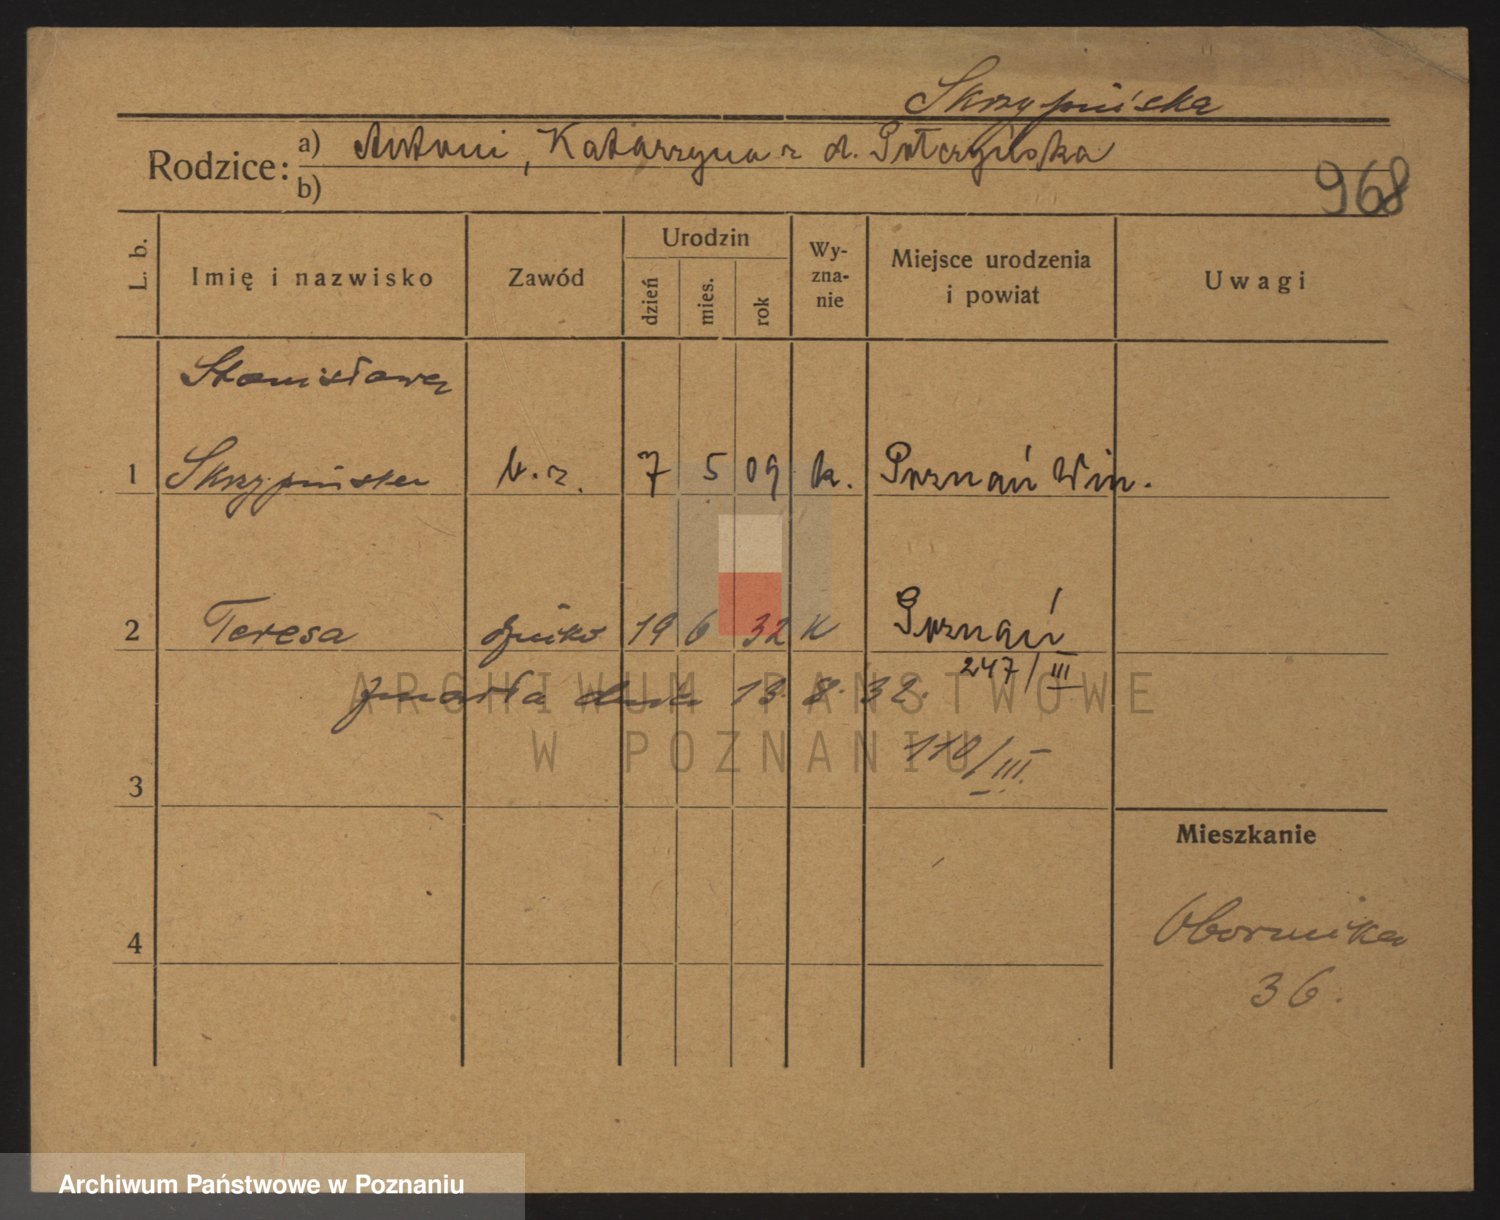 Skrzypińska
Rodzice: a) Antoni, Katarzyna z d. Połczyńska
b)
968
L. b. Imię i nazwisko Zawód Urodzin dzień mies. rok Wy-zna-nie Miejsce urodzenia i powiat Uwagi
Stanisława
1 Skrzypińska b. z. 7 5 09 k. Poznań Win.
2 Teresa 19 6 32 K Poznań
247/III
zmarła dnia 13. 8. 32.
110/III.
3
Mieszkanie
4 Obornicka
36.
ARCHIWUM PAŃSTWOWE
W POZNANIU
Archiwum Państwowe w Poznaniu